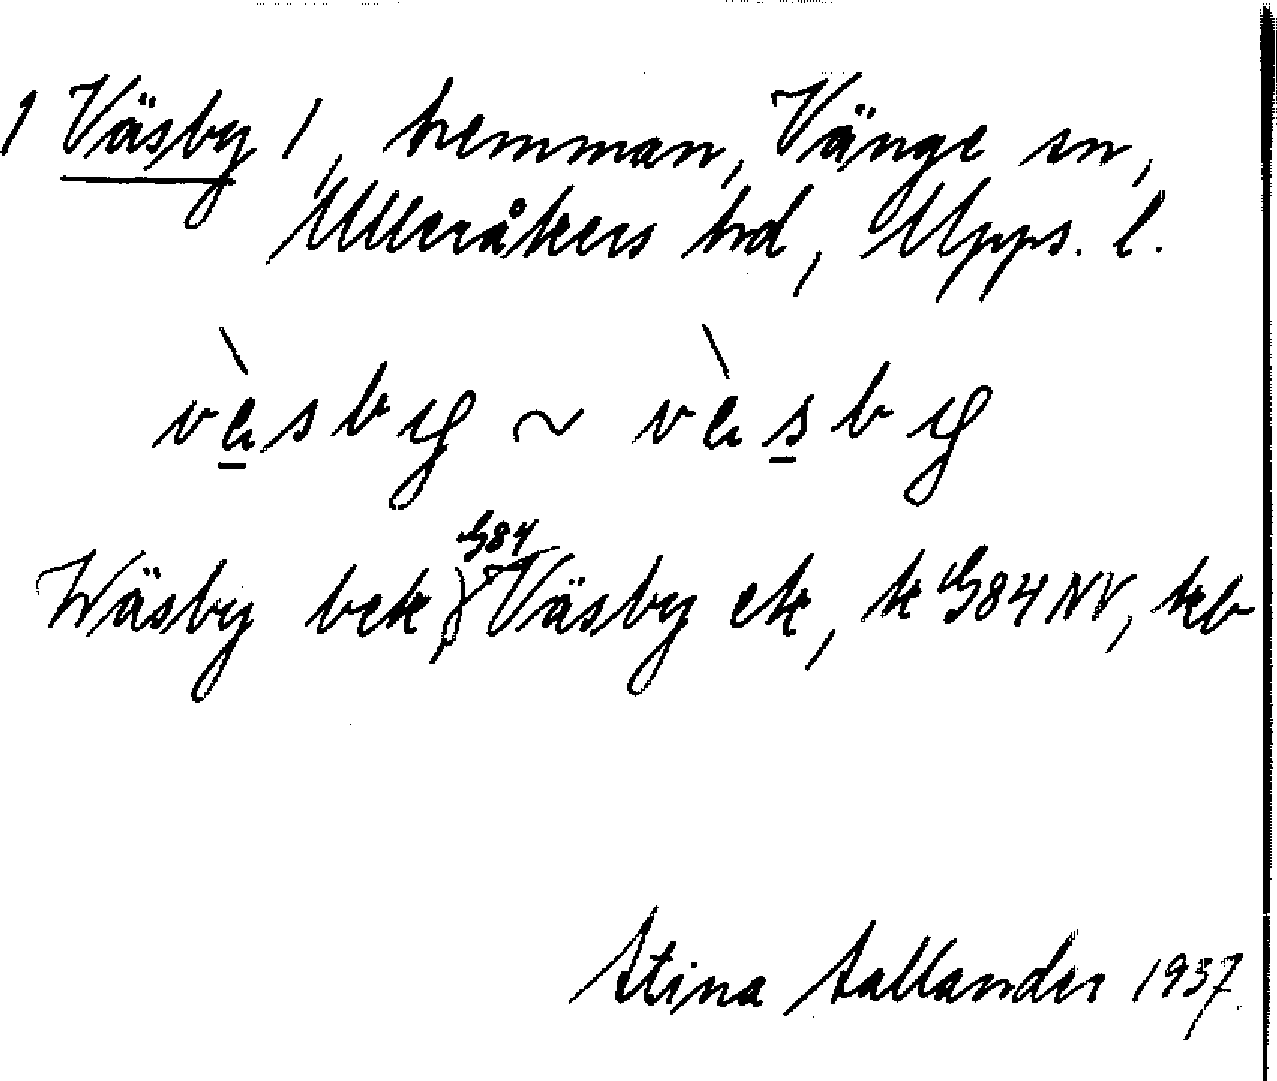 1 Väsby 1, hemman, Vänge sn,
Ulleråkers hd, Upps. l.
vè̱sby ~ vès̱by
Wäsby bek G84, Väsby ek, k G84 NV, kb
Stina Sallander 1937.